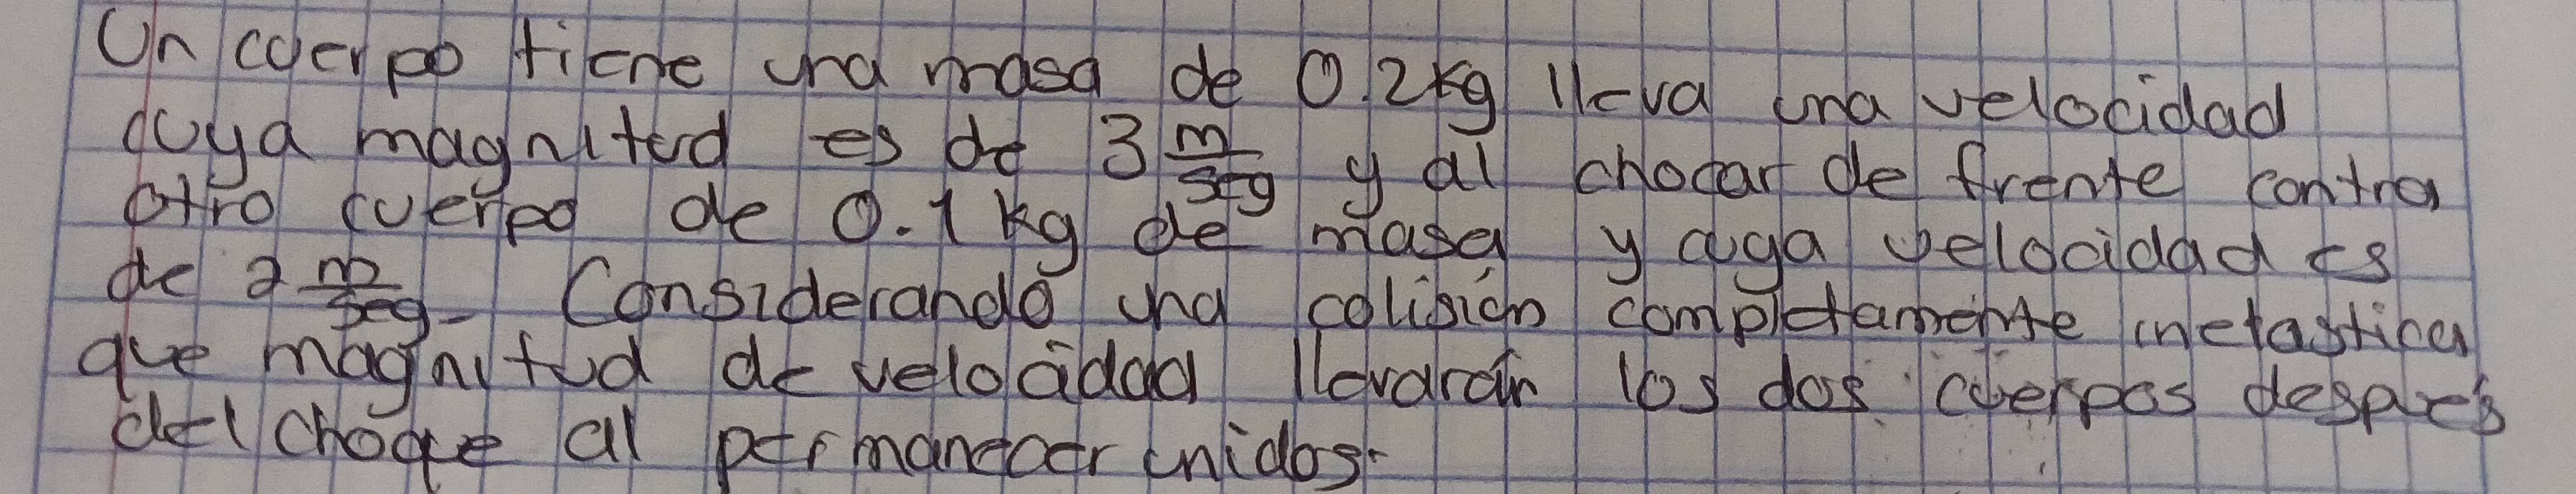 Un cuerpo tiene una masa de 0.2kg lleva una velocidad
cuya magnitud es de 3 m/seg y al chocar de frente contra
otro cuerpo de 0.1 kg de masa y cuya velocidad es
de 2 m/seg. Considerando una colisión completamente inelastica
que magnitud de velocidad llevarán los dos cuerpos después
del choque al permanecer unidos.